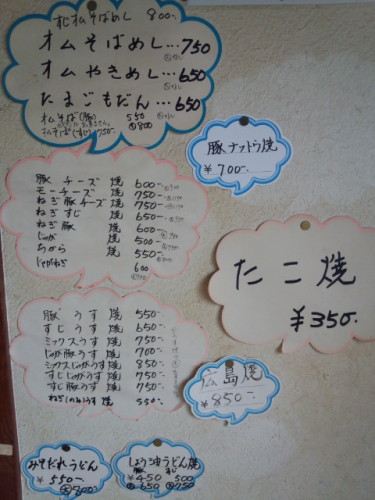 すじオムそばめし 800-
オムそばめし…750
オムやきめし…650
たまごもだん…650
オムそば(豚) 550
オムそば(すじ) 750-
豚ナットウ焼
¥700-
豚チーズ焼 600-
モーチーズ焼 750-
ねぎ豚チーズ焼 750-
ねぎすじ焼 650-
ねぎ豚焼 600-
じゃが焼 500-
ちから焼 550-
じゃがねぎ 600
たこ焼
¥350-
豚うす焼 550-
すじうす焼 650-
ミックスうす焼 750-
じゃが豚うす焼 700-
ミックスじゃがうす焼 850-
すじじゃがうす焼 750-
すじ豚うす焼 750-
ねぎ(のみ)うす焼 550-
広島焼
¥850-
みそだれうどん
¥550-
大800-
しょうゆうどん焼
豚 すじ
¥450 500
大650 大750